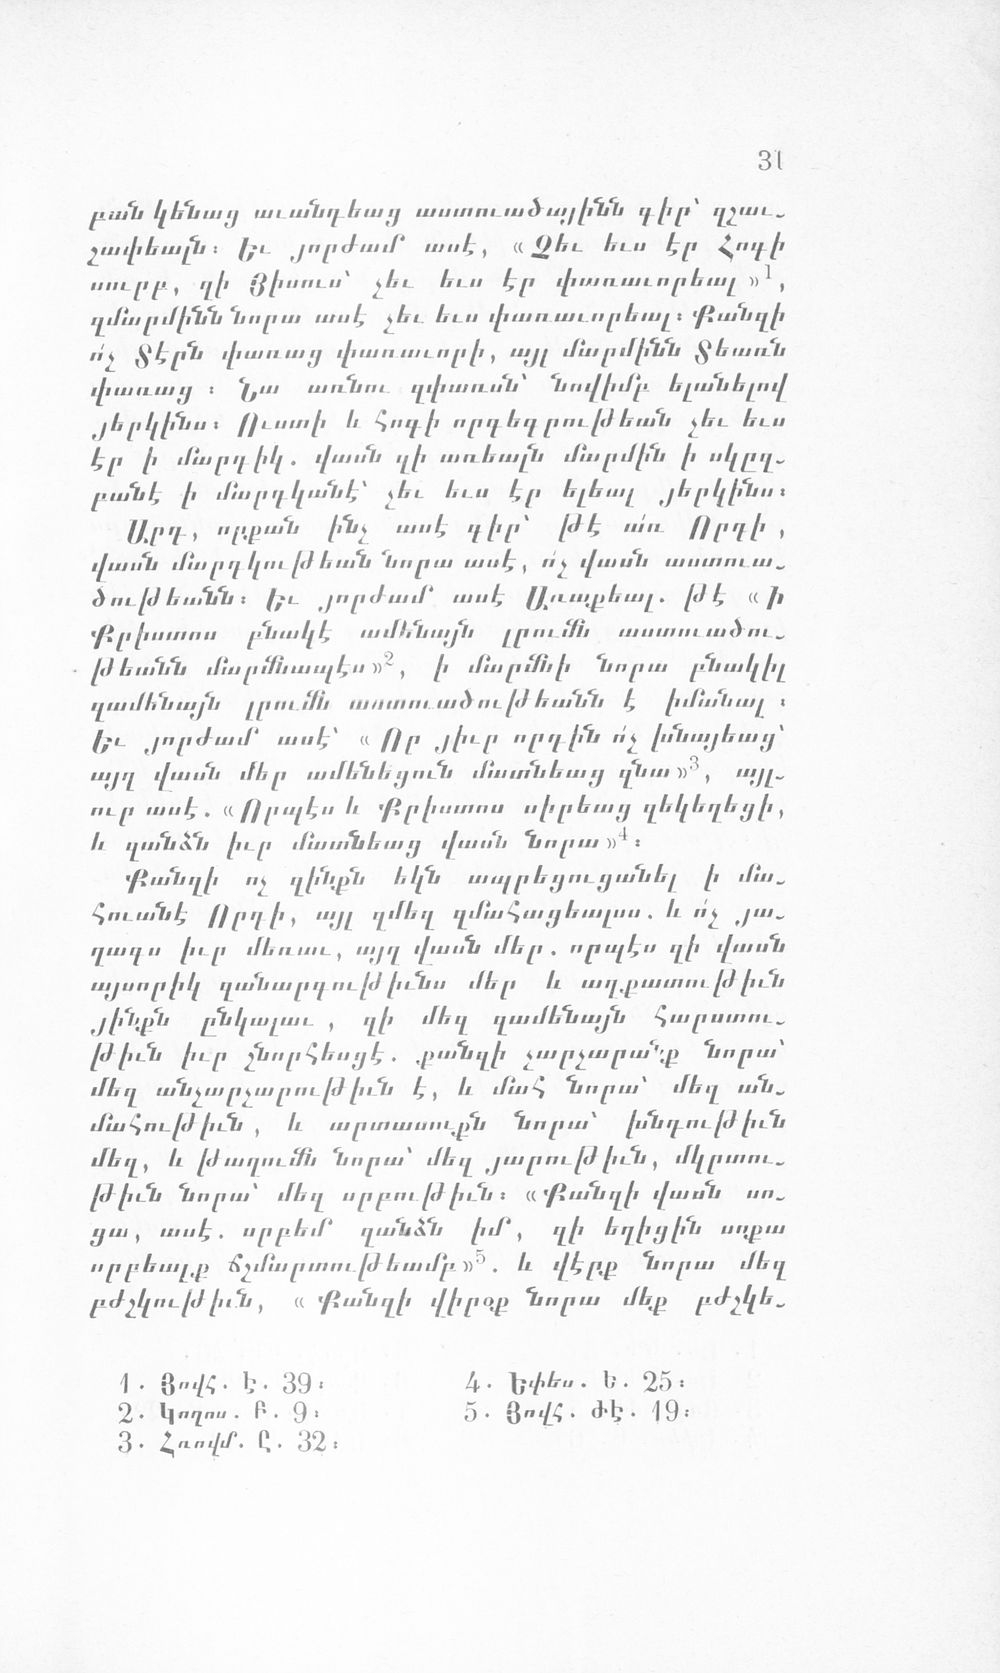 31
բան կենաց աւանդեաց աստուածայինն գիր՝ զշաւ֊
շափեալն։ Եւ յորժամ ասէ, «Չեւ եւս էր Հոգի
սուրբ, զի Յիսուս՝ չեւ եւս էր փառաւորեալ»1,
զմարմինն նորա ասէ չեւ եւս փառաւորեալ։ Քանզի
ո՛չ Տէրն փառաց փառաւորի, այլ մարմինն Տեառն
փառաց։ Նա առնու զփառսն՝ նովիմբ ելանելով
յերկինս։ Ուստի և հոգի որդեգրութեան չեւ եւս
էր ի մարդիկ. վասն զի առեալն մարմին ի սկըզ֊
բանէ ի մարդկանէ՝ չեւ եւս էր ելեալ յերկինս։
Արդ, որքան ինչ ասէ գիր՝ թէ ա՛ռ Որդի,
վասն մարդկութեան նորա ասէ, ո՛չ վասն աստուա֊
ծութեանն։ Եւ յորժամ ասէ Առաքեալ. թէ «Ի
Քրիստոս բնակէ ամենայն լրումն աստուածու֊
թեանն մարմնապէս»2, ի մարմնի նորա բնակիլ
զամենայն լրումն աստուածութեանն է իմանալ։
Եւ յորժամ ասէ՝ «Որ յիւր որդին ո՛չ խնայեաց՝
այղ վասն մեր ամենեցուն մատնեաց զնա»3, այլ֊
ուր ասէ. «Որպէս և Քրիստոս սիրեաց զեկեղեցի,
և զանձն իւր մատնեաց վասն նորա»4։
Քանզի ոչ զինքն եկն ապրեցուցանել ի մա֊
հուանէ Որդի, այլ զմեզ զմահացեալսս. և ո՛չ յա֊
ղագս իւր մեռաւ, այղ վասն մեր. որպէս զի վասն
այսորիկ զանարգութիւնս մեր և աղքատութիւն
յինքն ընկալաւ, զի մեզ զամենայն հարստու֊
թիւն իւր շնորհեսցէ. քանզի չարչարանք նորա՝
մեզ անչարչարութիւն է, և մահ նորա՝ մեզ ան֊
մահութիւն, և արտասուքն նորա՝ խնդութիւն
մեզ, և թաղումն նորա՝ մեզ յարութիւն, մկրտու֊
թիւն նորա՝ մեզ սրբութիւն։ «Քանզի վասն սո֊
ցա, ասէ. սրբեմ զանձն իմ, զի եղիցին սոքա
սրբեալք ճշմարտութեամբ»5. և վէրք նորա մեզ
բժշկութիւն, «Քանզի վիրօք նորա մեք բժշկե֊
1. Յովհ. Է. 39։
2. Կողոս. Բ. 9։
3. Հռովմ. Ը. 32։
4. Եփես. Ե. 25։
5. Յովհ. ԺԷ. 19։